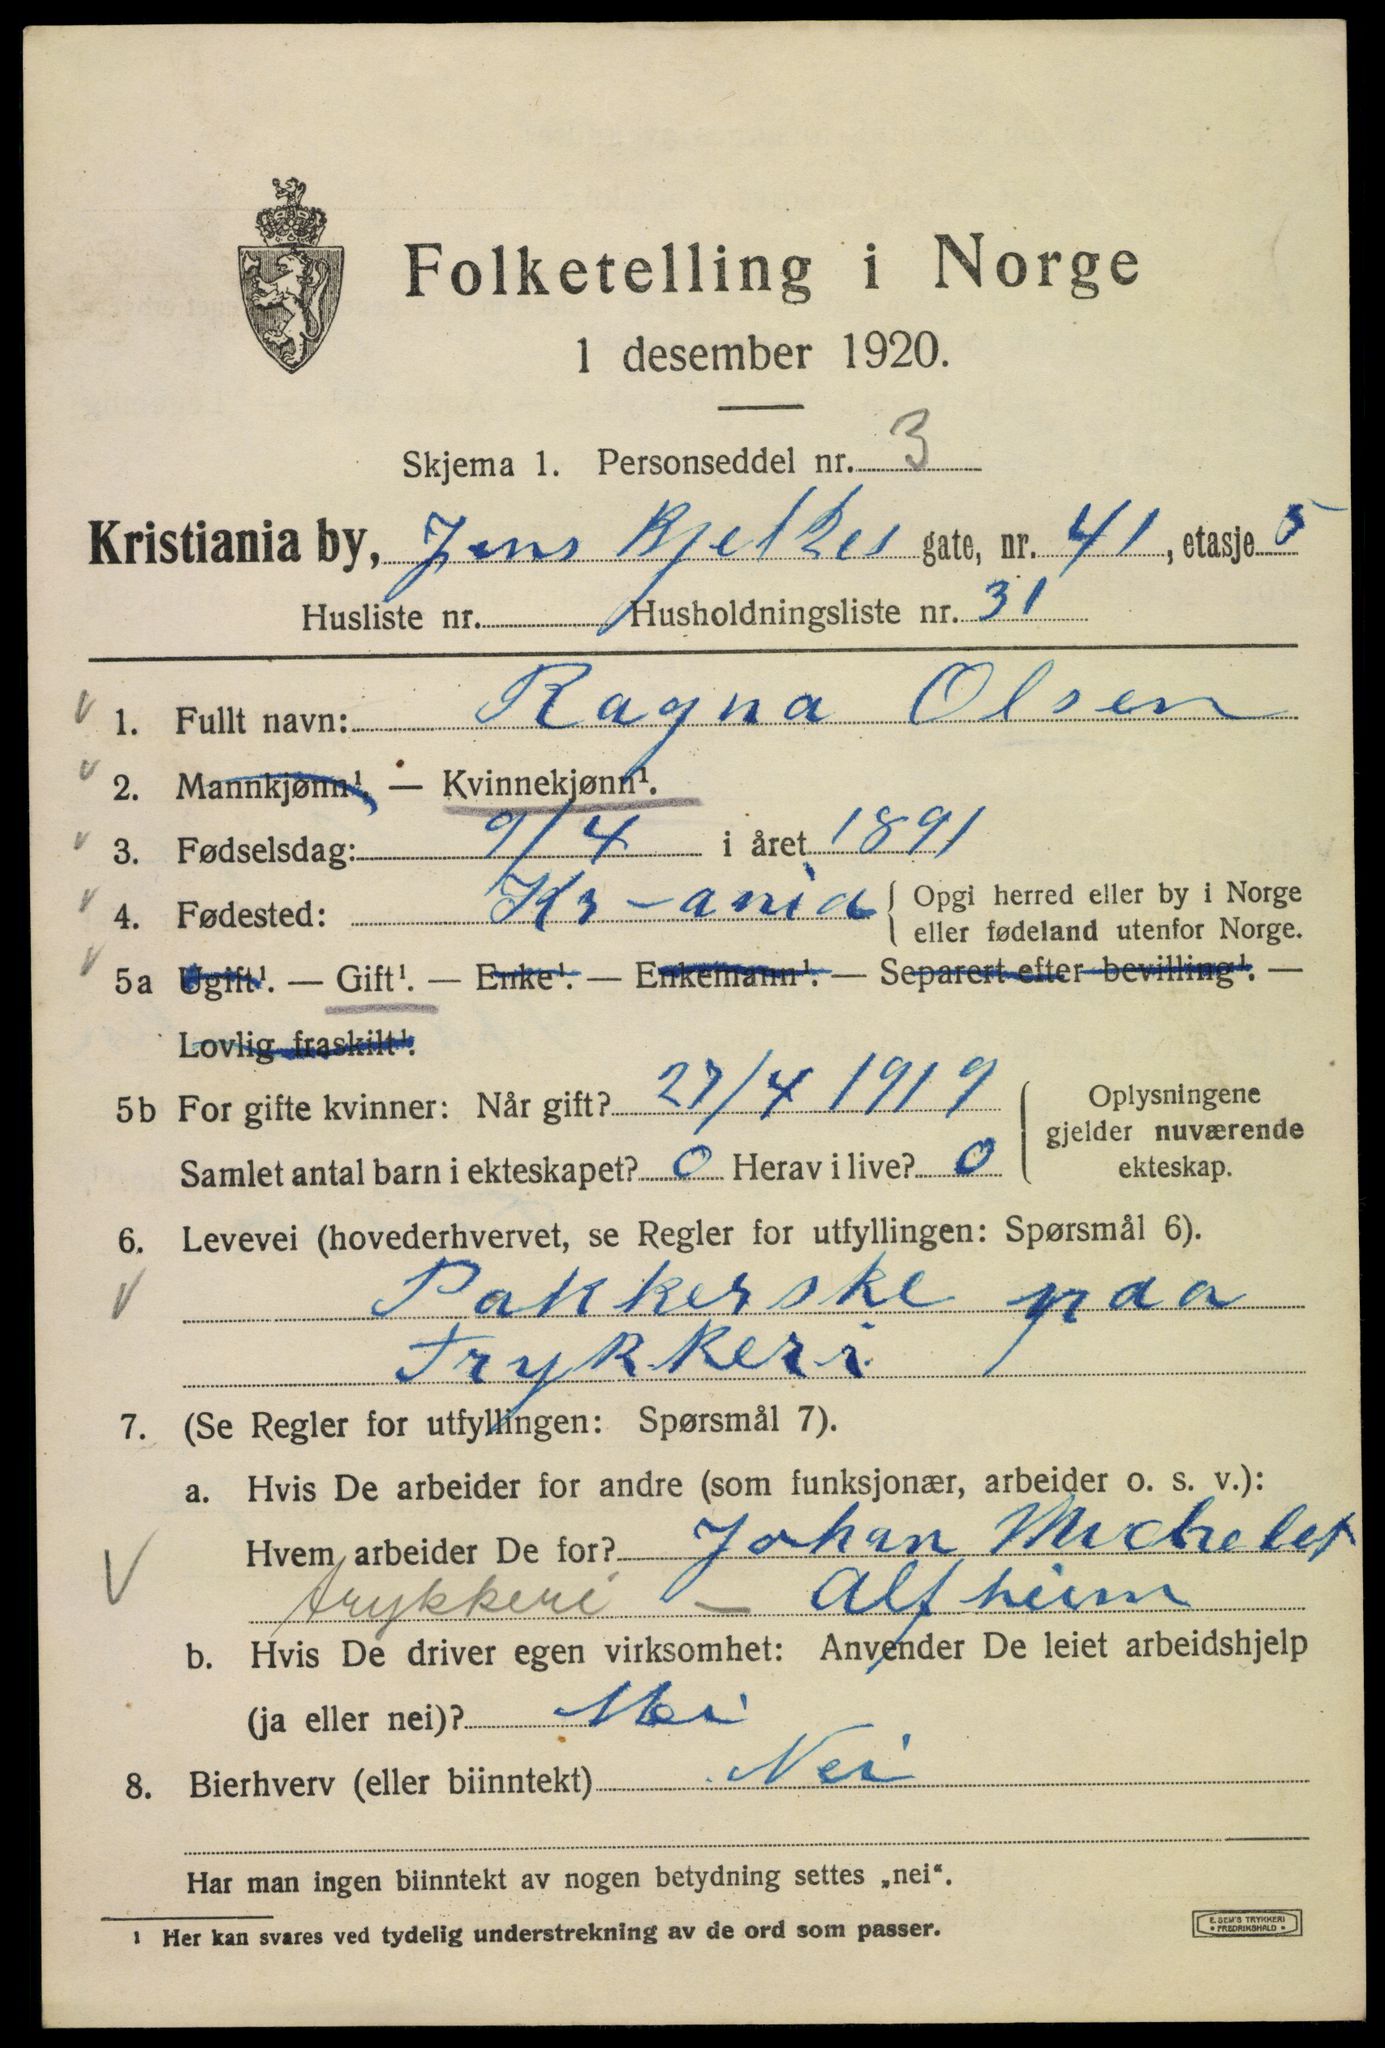 Folketelling i Norge
1 desember 1920.
Skjema 1. Personseddel nr. 3
Kristiania by, Jens Bjelkes gate, nr. 41, etasje 5
Husliste nr. Husholdningsliste nr. 31
1. Fullt navn: Ragna Olsen
2. Mannkjønn¹. — Kvinnekjønn¹.
3. Fødselsdag: 9/4 i året 1891
4. Fødested: Kr-ania { Opgi herred eller by i Norge
eller fødeland utenfor Norge.
5a Ugift¹. — Gift¹. — Enke¹. — Enkemann¹. — Separert efter bevilling¹. —
Lovlig fraskilt¹.
5b For gifte kvinner: Når gift? 27/4 1919
Samlet antal barn i ekteskapet? 0 Herav i live? 0
Oplysningene
gjelder nuværende
ekteskap.
6. Levevei (hovederhvervet, se Regler for utfyllingen: Spørsmål 6).
Pakkerske paa
Trykkeri
7. (Se Regler for utfyllingen: Spørsmål 7).
a. Hvis De arbeider for andre (som funksjonær, arbeider o. s. v.):
Hvem arbeider De for? Johan Michelet
trykkeri — Alfheim
b. Hvis De driver egen virksomhet: Anvender De leiet arbeidshjelp
(ja eller nei)? Nei
8. Bierhverv (eller biinntekt) Nei
Har man ingen biinntekt av nogen betydning settes „nei“.
¹ Her kan svares ved tydelig understrekning av de ord som passer.
E. SEM'S TRYKKERI
• FREDRIKSHALD •